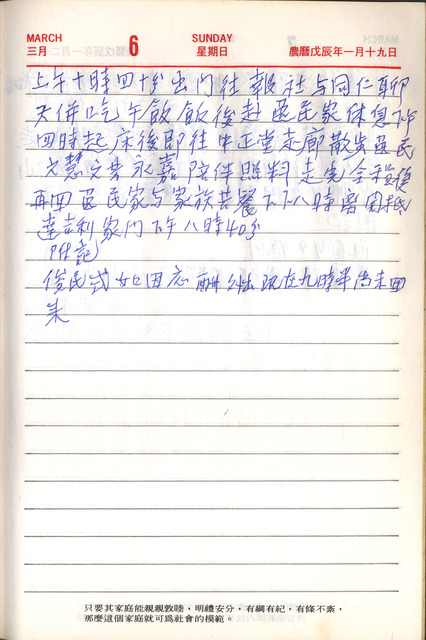 MARCH
三月
6
SUNDAY
星期日
農曆戊辰年一月十九日
上午十時四十分出門往報社与同仁聊
天併吃午飯飯後赴匡民家休息下午
四時起床後即往中正堂走廊散步匡民
文慧文芳永嘉陪伴照料走完全程後
再回匡民家与家族共餐下午八時雪園抵
達立利家門下午八時40分
附記
俊民式如因应酬外出現在九時半尚未回
来
只要其家庭能親親敦睦，明禮安分，有綱有紀，有條不紊，
那麼這個家庭就可爲社會的模範。